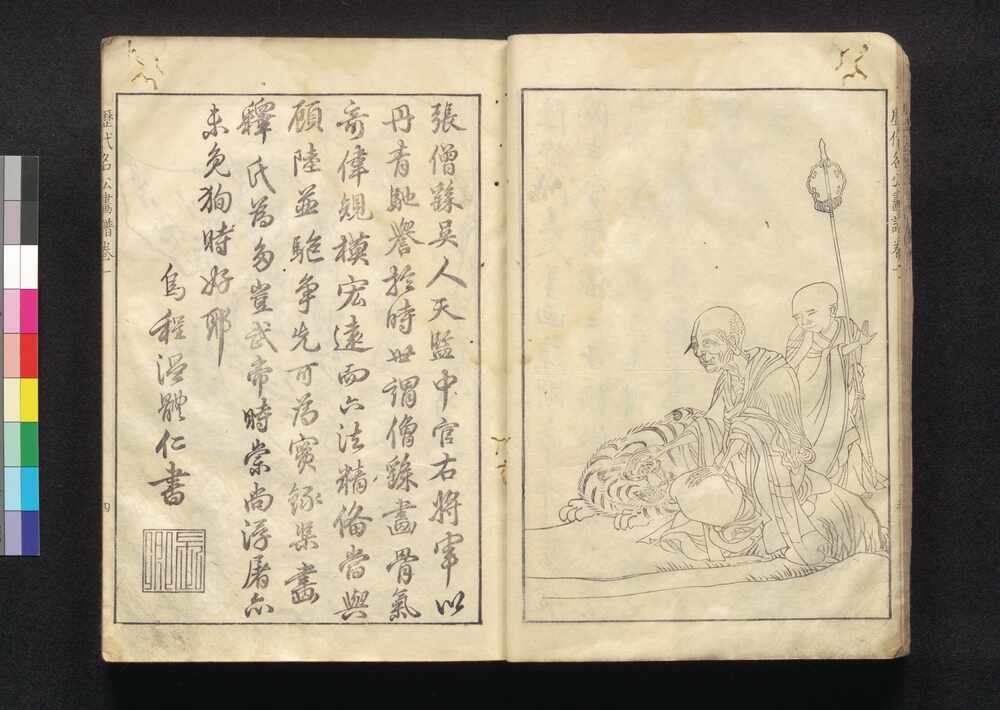 歷代名公畫譜 卷一
張僧繇吳人天監中官右將軍以
丹青馳譽於時世謂僧繇畫骨氣
奇偉規模宏遠而六法精備當與
顧陸並馳爭先可為寶錄第畫
釋氏為多豈武帝時崇尚浮屠亦
未免狥時好耶
烏程溫體仁書
歷代名公畫譜 卷一
四